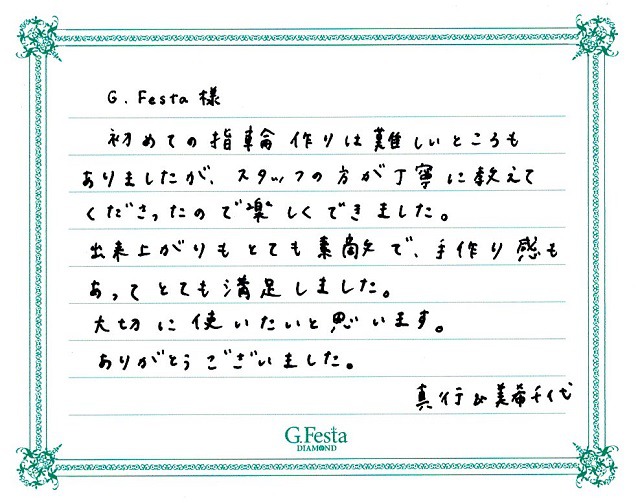 G. Festa 様
初めての指輪作りは難しいところも
ありましたが、スタッフの方が丁寧に教えて
くださったので楽しくできました。
出来上がりもとても素敵で、手作り感も
あってとても満足しました。
大切に使いたいと思います。
ありがとうございました。
真行&美希千代
G.Festa
DIAMOND